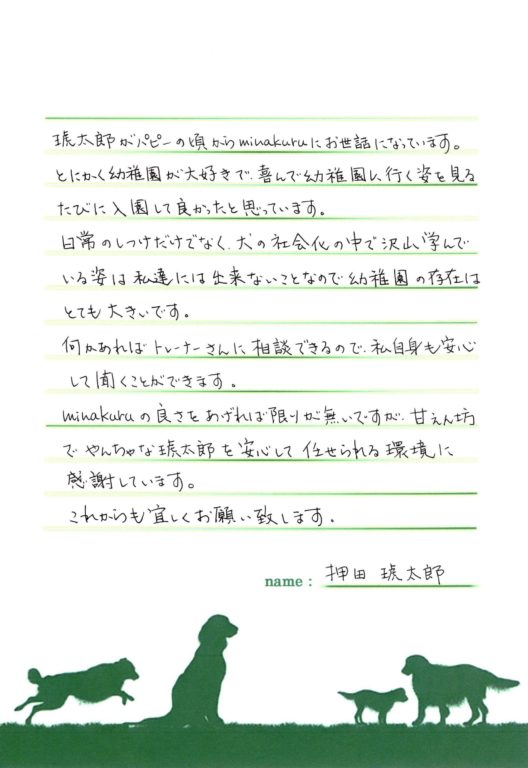 琥太郎がパピーの頃からminakuruにお世話になっています。
とにかく幼稚園が大好きで、喜んで幼稚園へ行く姿を見る
たびに入園して良かったと思っています。
日常のしつけだけでなく、犬の社会化の中で沢山学んで
いる姿は私達には出来ないことなので幼稚園の存在は
とても大きいです。
何かあればトレーナーさんに相談できるので、私自身も安心
して聞くことができます。
minakuruの良さをあげれば限りが無いですが、甘えん坊
でやんちゃな琥太郎を安心して任せられる環境に
感謝しています。
これからも宜しくお願い致します。
name : 押田 琥太郎